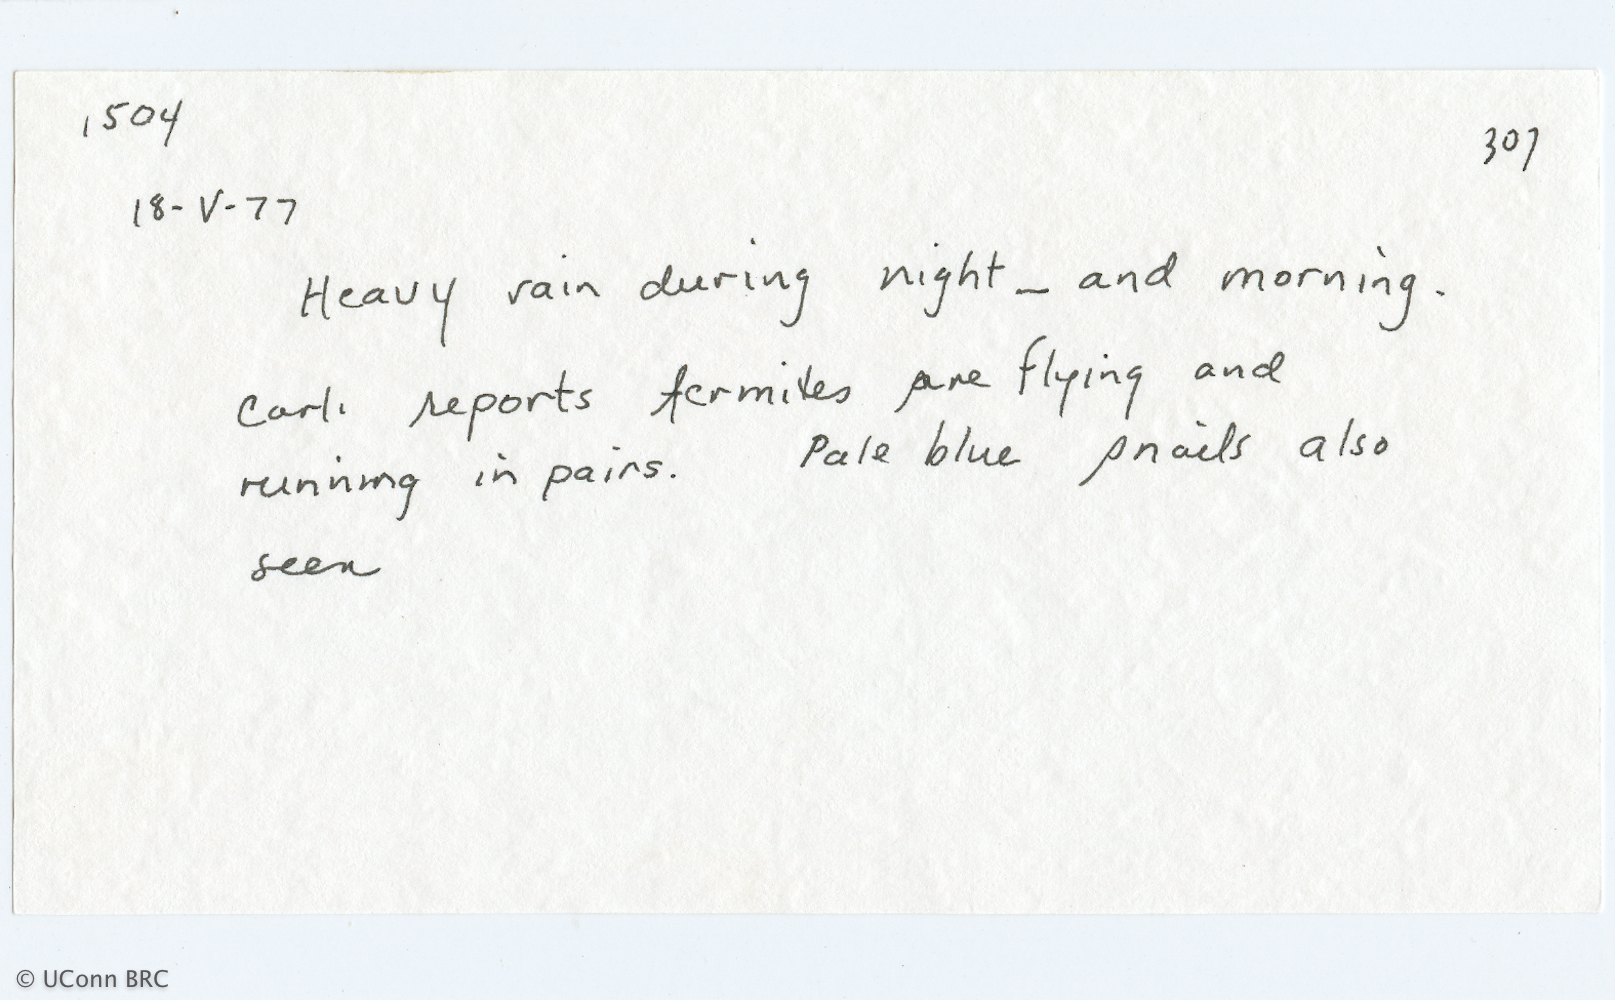 1504
307
18-V-77
Heavy rain during night — and morning.
Carli reports termites are flying and
running in pairs. Pale blue snails also
seen
© UConn BRC